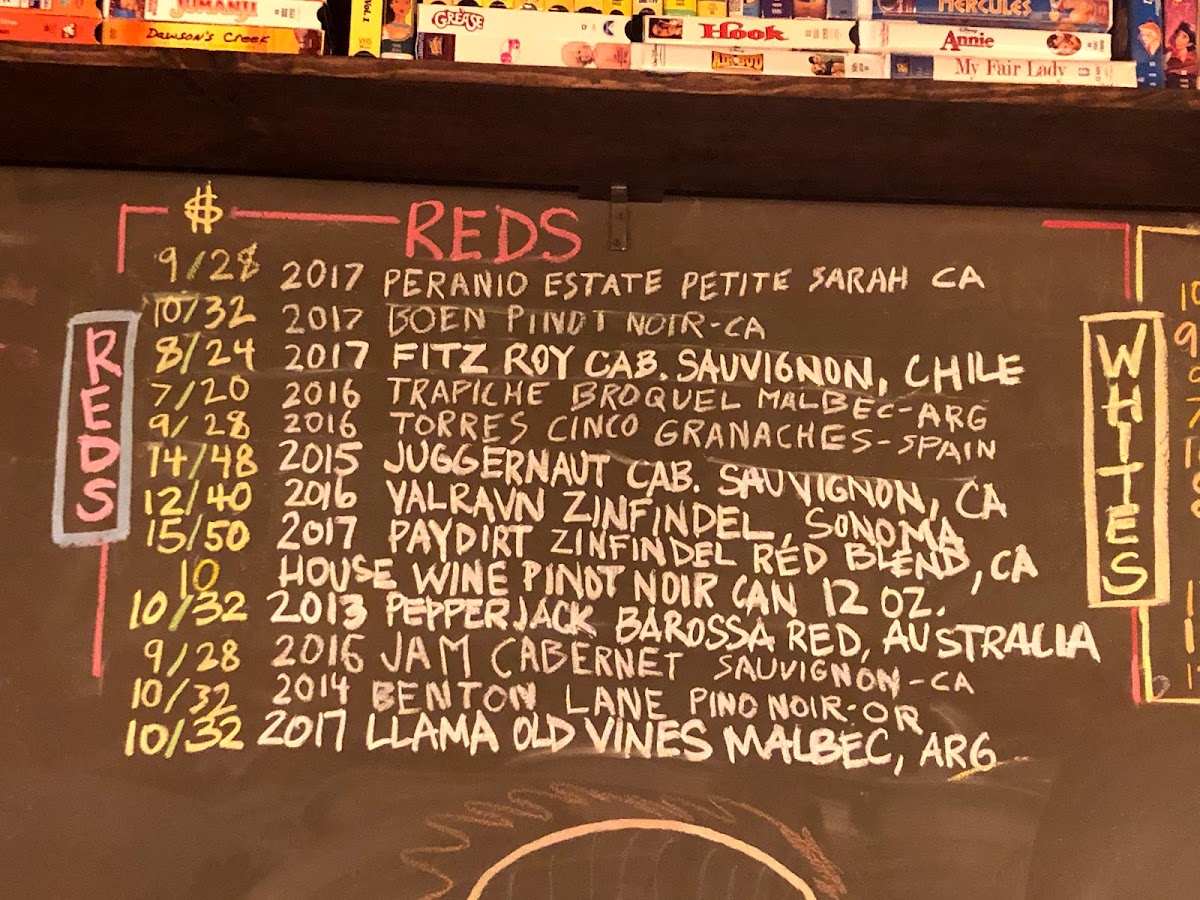 JUMANJI
DAWSON'S CREEK
VOL.2
GREASE
Hook
AIR BUD
HERCULES
Annie
My Fair Lady
$ REDS
REDS
9/28 2017 PERANIO ESTATE PETITE SARAH CA
10/32 2017 BOEN PINOT NOIR-CA
8/24 2017 FITZ ROY CAB. SAUVIGNON, CHILE
7/20 2016 TRAPICHE BROQUEL MALBEC-ARG
9/28 2016 TORRES CINCO GRANACHES-SPAIN
14/48 2015 JUGGERNAUT CAB. SAUVIGNON, CA
12/40 2016 VALRAVN ZINFINDEL, SONOMA
15/50 2017 PAYDIRT ZINFINDEL RED BLEND, CA
10 HOUSE WINE PINOT NOIR CAN 12 OZ.
10/32 2013 PEPPERJACK BAROSSA RED, AUSTRALIA
9/28 2016 JAM CABERNET SAUVIGNON-CA
10/32 2014 BENTON LANE PINO NOIR-OR
10/32 2017 LLAMA OLD VINES MALBEC, ARG
WHITES